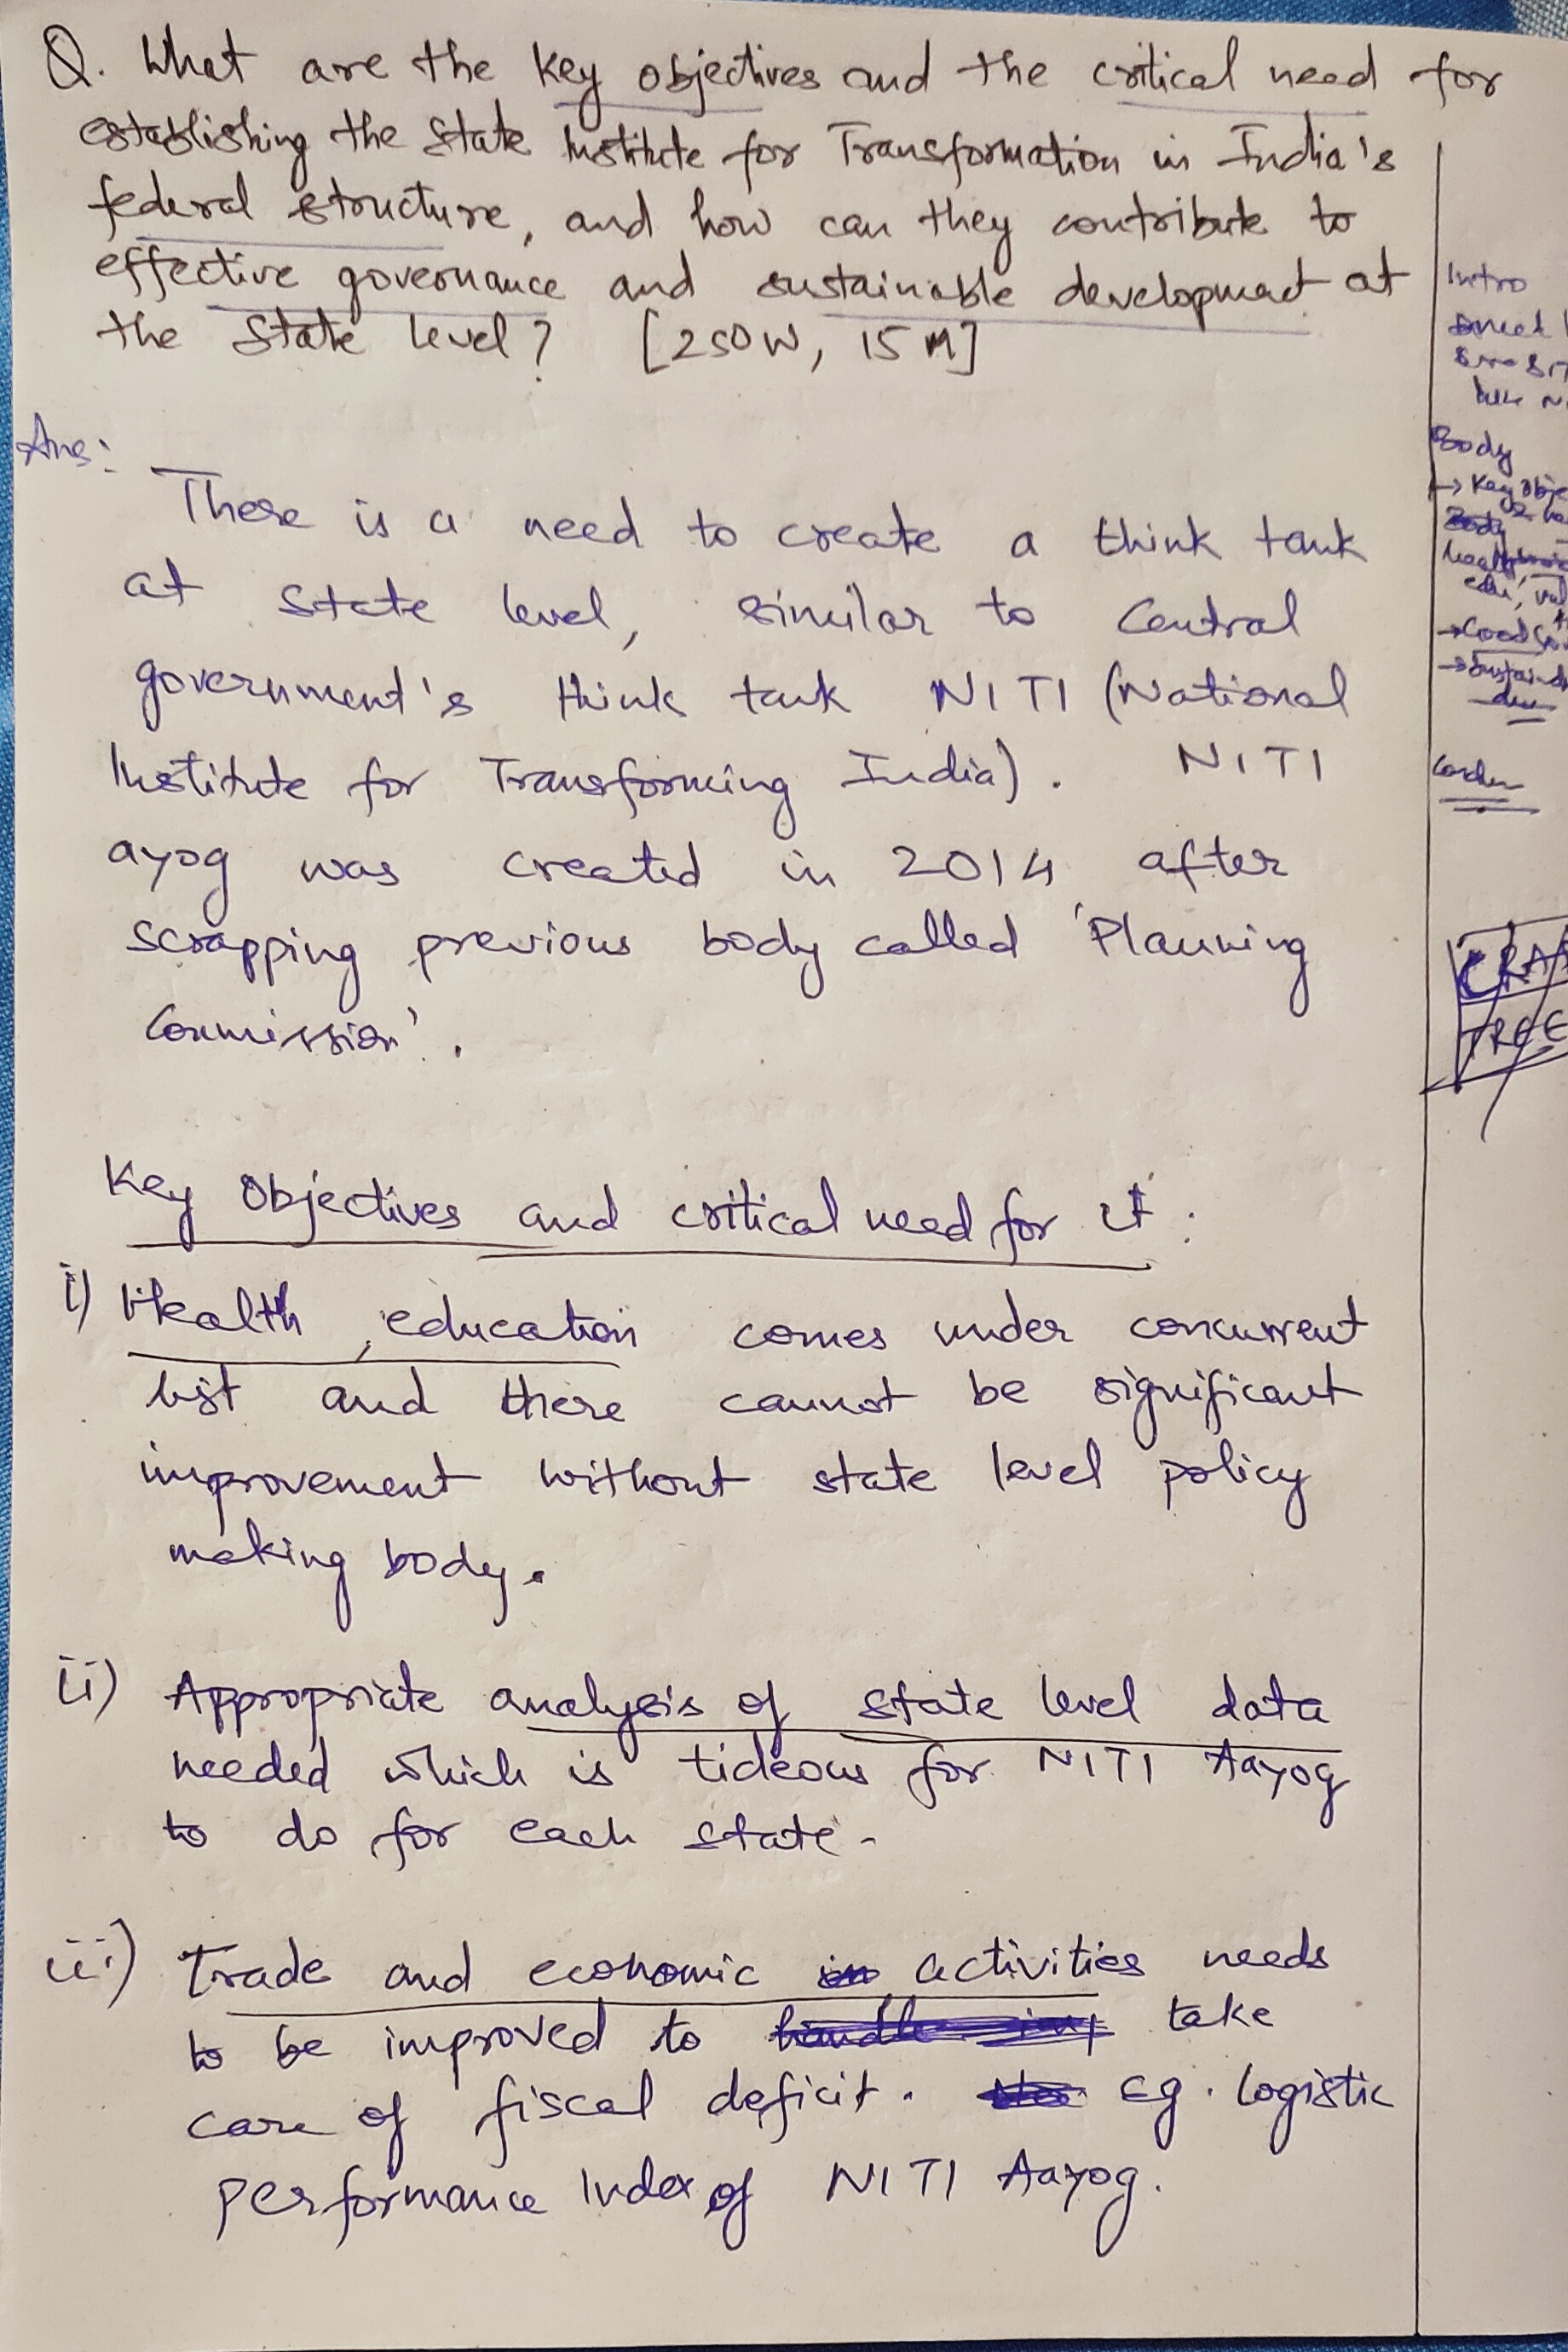 Q. What are the key objectives and the critical need for
establishing the State Institute for Transformation in India's
federal structure, and how can they contribute to
effective governance and sustainable development at
the State level? [250W, 15M]
Ans:
There is a need to create a think tank
at state level, similar to Central
government's think tank NITI (National
Institute for Transforming India). NITI
ayog was created in 2014 after
scrapping previous body called 'Planning
Commission'.
Key Objectives and critical need for it:
i) Health, education comes under concurrent
list and there cannot be significant
improvement without state level policy
making body.
ii) Appropriate analysis of state level data
needed which is tideous for NITI Aayog
to do for each state.
iii) Trade and economic activities needs
to be improved to take
care of fiscal deficit. Eg. Logistic
Performance Index of NITI Aayog.
Intro
Body
→ Key Obje
edu,
→ Good
→ Sustain
CRA
TREE